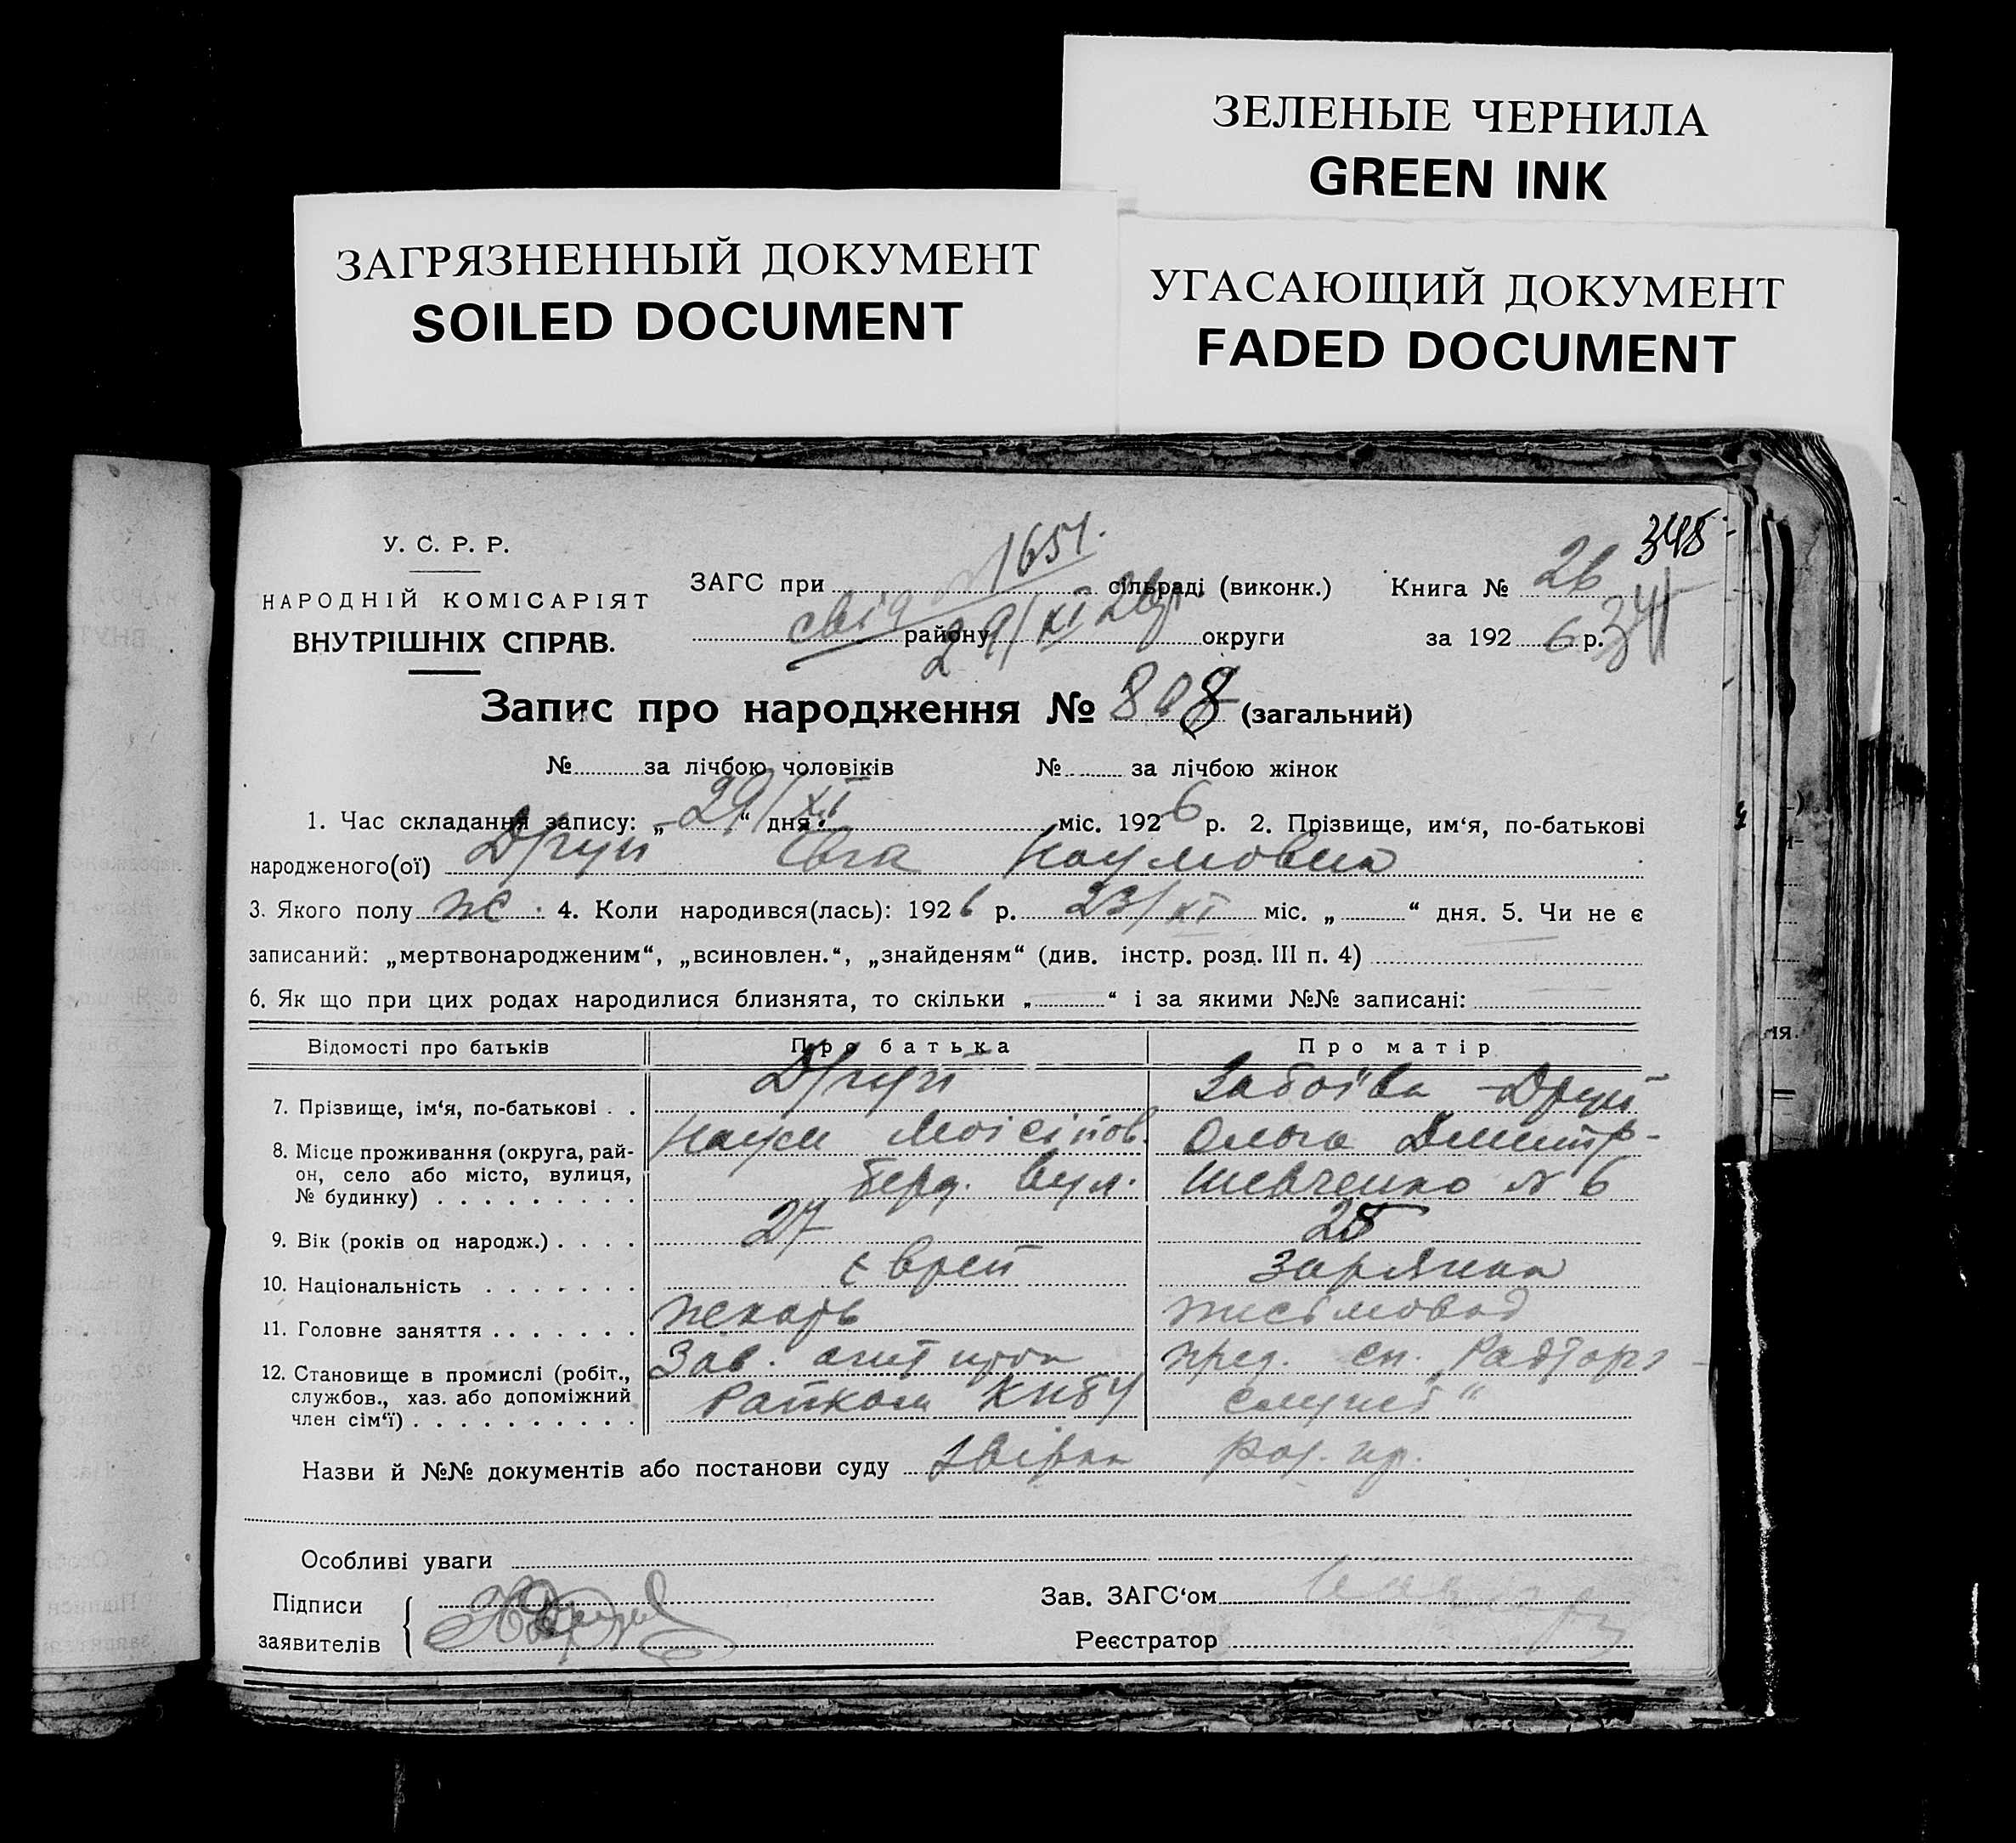 ЗЕЛЕНЫЕ ЧЕРНИЛА
GREEN INK
ЗАГРЯЗНЕННЫЙ ДОКУМЕНТ
SOILED DOCUMENT
УГАСАЮЩИЙ ДОКУМЕНТ
FADED DOCUMENT
348
У. С. Р. Р.
НАРОДНІЙ КОМІСАРІЯТ
ВНУТРІШНІХ СПРАВ.
1651.
ЗАГС при сільраді (виконк.) Книга № 26
свід 29/XI 26р
району округи за 192 6 р.
341
Запис про народження № 808 (загальний)
№ за лічбою чоловіків № за лічбою жінок
1. Час складання запису: „ 29/XI “ дня міс. 192 6 р. 2. Прізвище, им‘я, по-батькові
народженого(ої) Друй Наумовна
3. Якого полу ж. 4. Коли народився(лась): 192 6 р. 23/XI міс. „ “ дня. 5. Чи не є
записаний: „мертвонародженим“, „всиновлен.“, „знайденям“ (див. інстр. розд. III п. 4)
6. Як що при цих родах народилися близнята, то скільки „ “ і за якими №№ записані:
Відомості про батьків Про батька Про матір
7. Прізвище, ім‘я, по-батькові . . Друй Забоїва - Друй
Наум Мойсійов. Ольга Дмитр-
8. Місце проживання (округа, рай-
он, село або місто, вулиця,
№ будинку) . . . . . . . . . Берд. вул. Шевченко № 6
9. Вік (років од народж.) . . . . 27 25
10. Національність . . . . . . . єврей
11. Головне заняття . . . . . . . пекарь письмовод
12. Становище в промислі (робіт.,
службов., хаз. або допоміжний
член сім‘ї) . . . . . . . . . .
Зав. агитпроп
Райком КПбУ службов
Назви й №№ документів або постанови суду Звірка
Особливі уваги
Підписи
заявителів
Зав. ЗАГС‘ом
Реєстратор